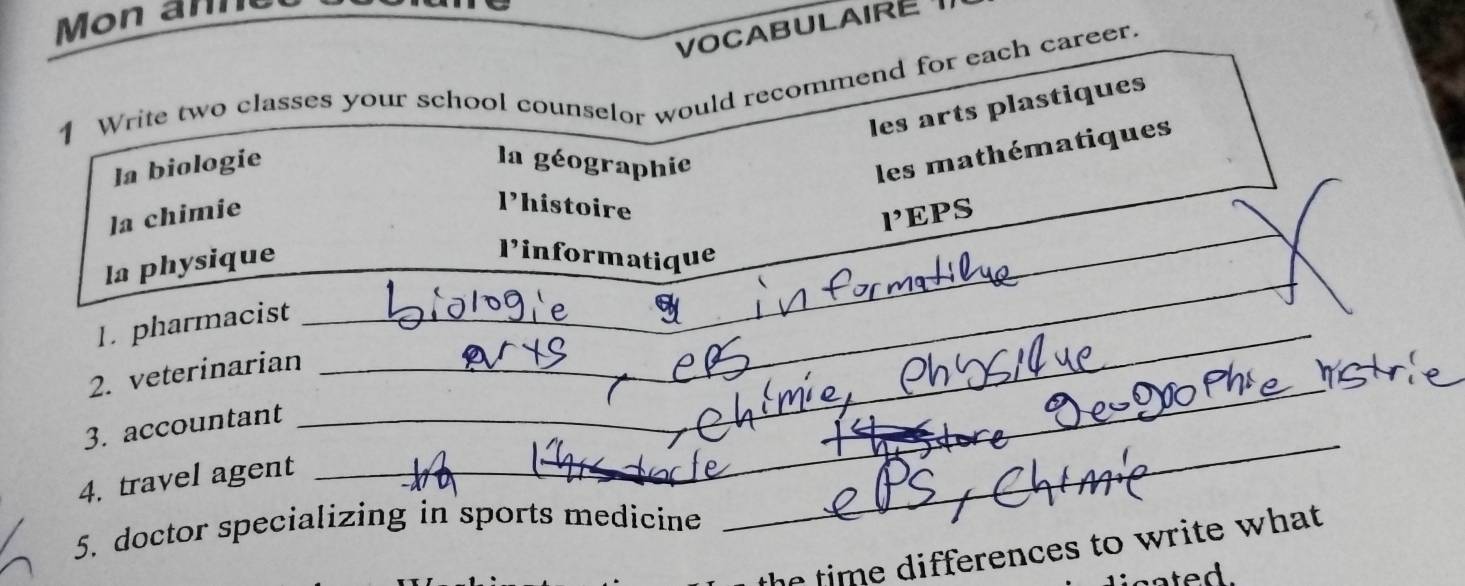 Mon
VOCABULAIRE
1 Write two classes your school counselor would recommend for each career.
la biologie la géographie les arts plastiques
la chimie l'histoire les mathématiques
la physique l'informatique l'EPS
1. pharmacist biologie informatique
2. veterinarian arts, eps
3. accountant , chimie, physique
4. travel agent geogoophie histrie
5. doctor specializing in sports medicine ePS, chimie
the time differences to write what